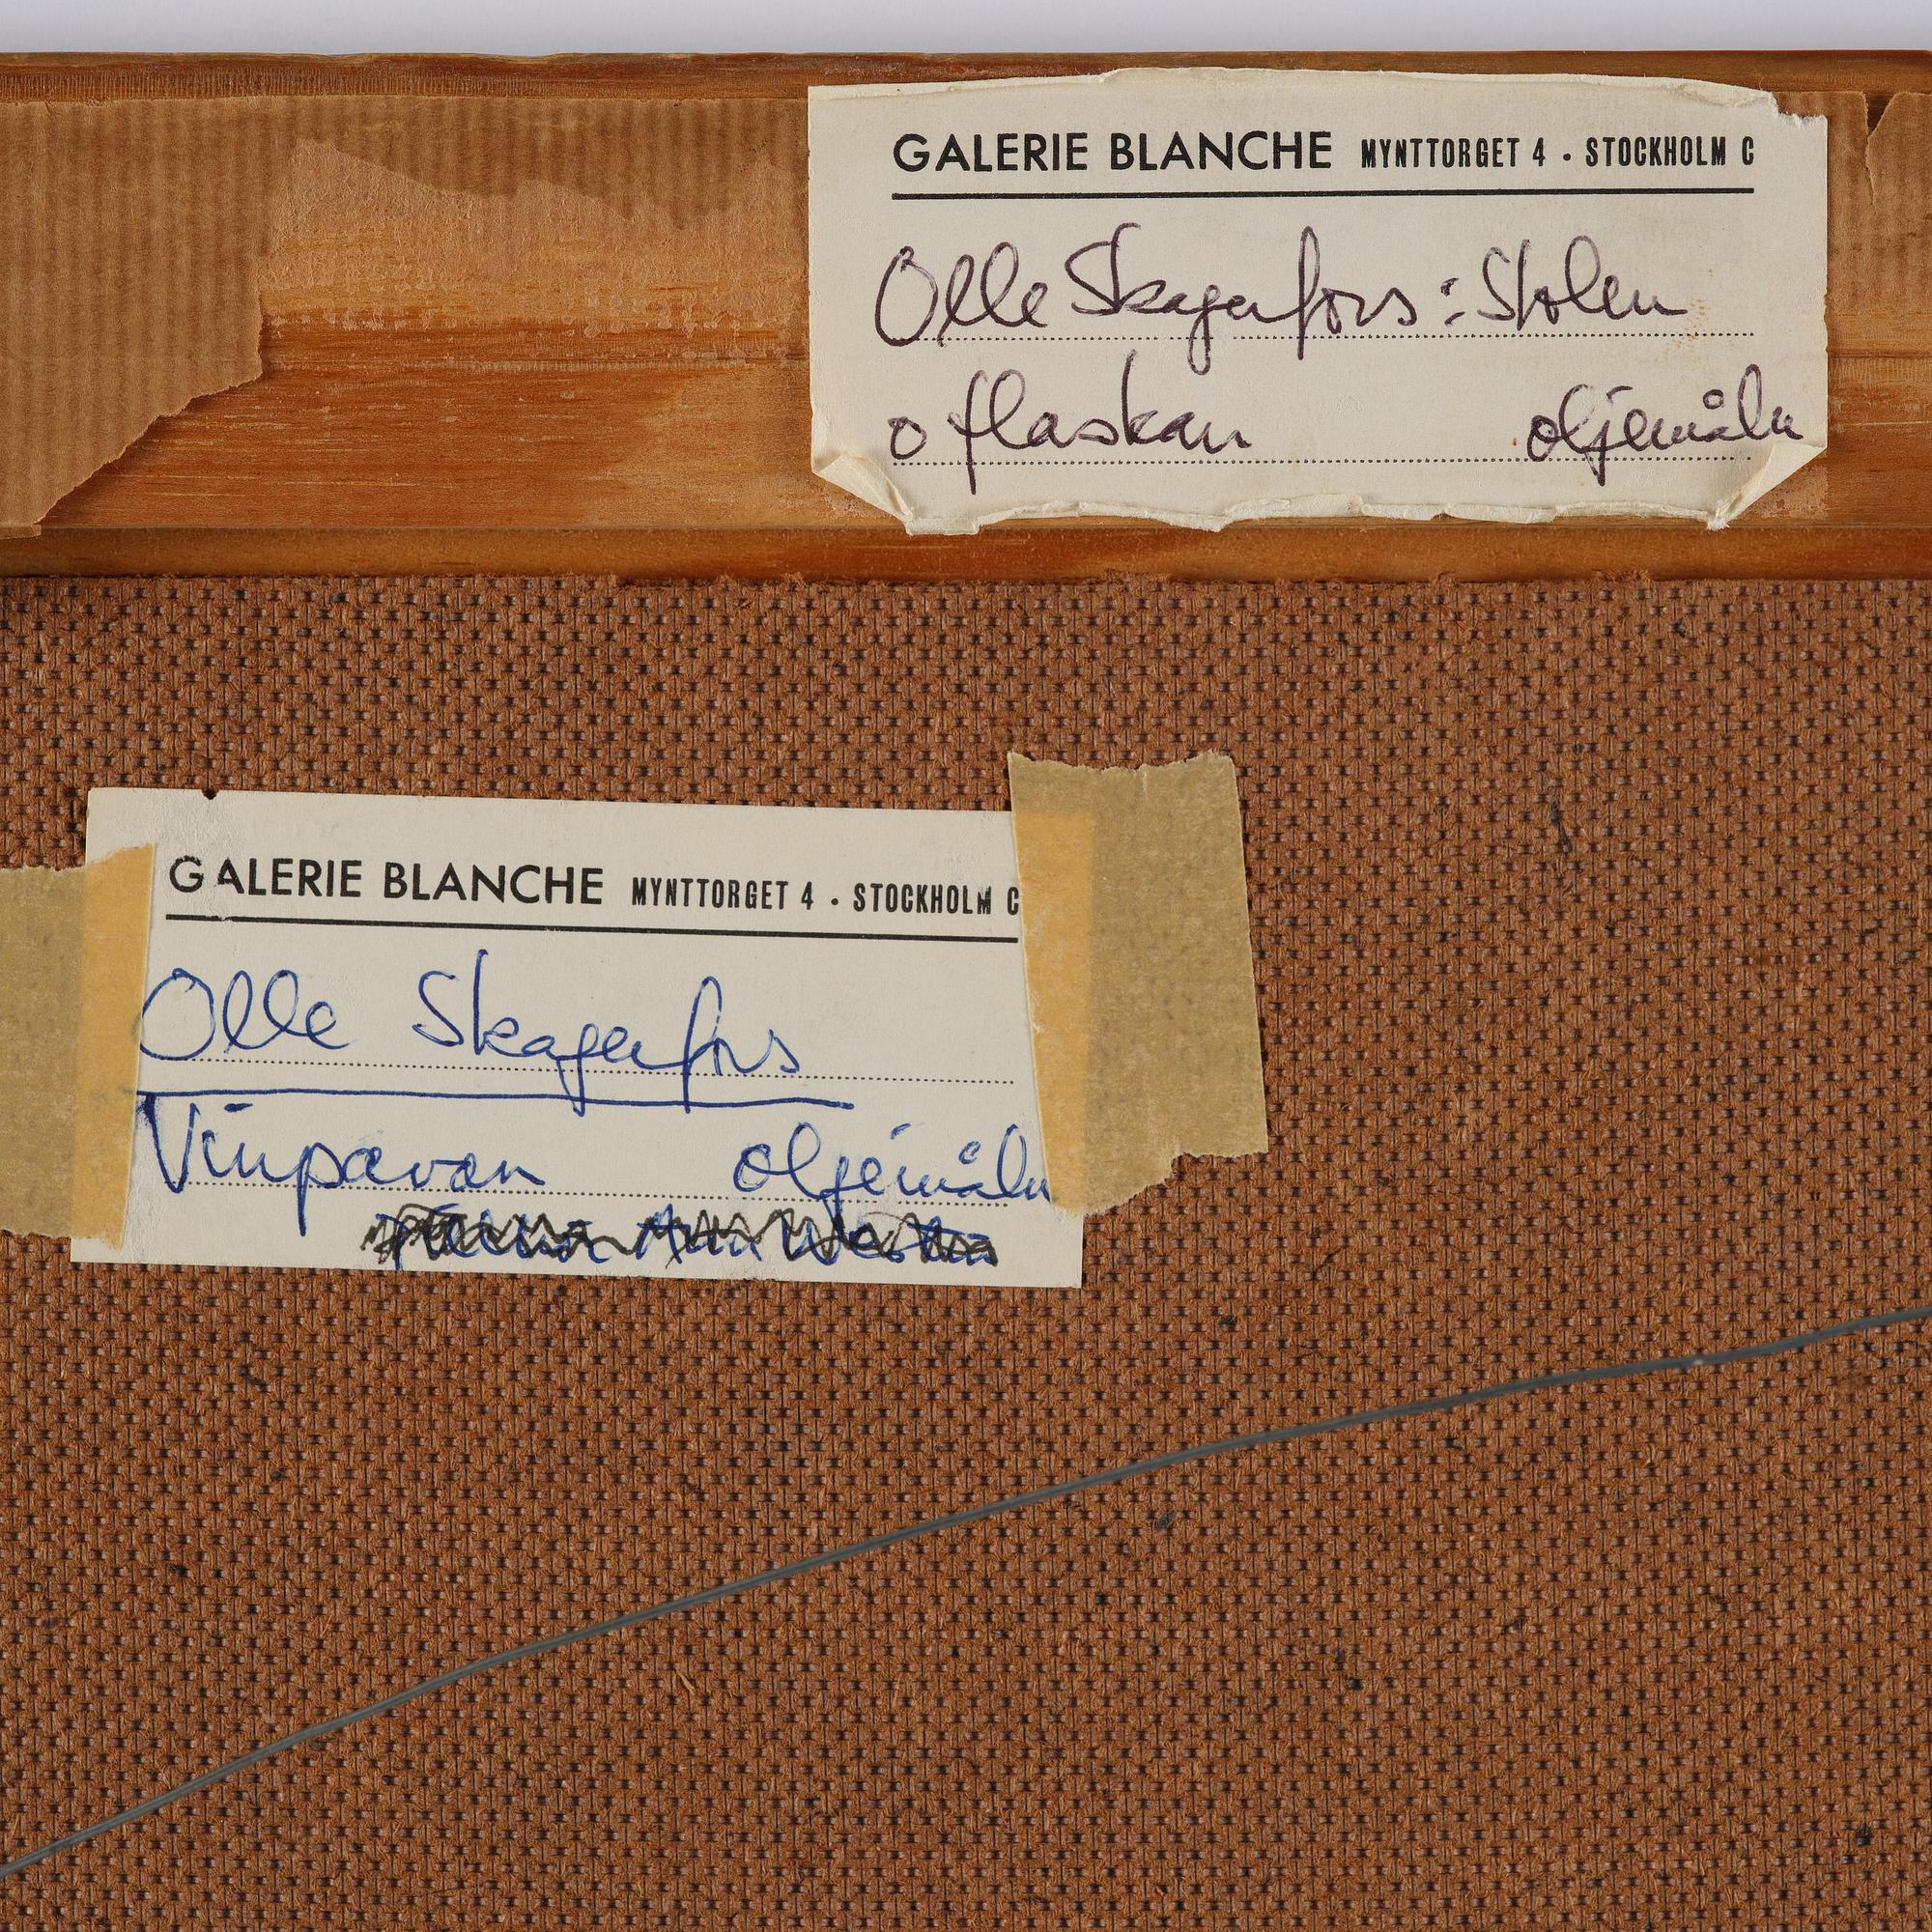 GALERIE BLANCHE MYNTTORGET 4 · STOCKHOLM C
Olle Skagerfors: Stolen
o flaskan oljemåln
GALERIE BLANCHE MYNTTORGET 4 · STOCKHOLM C
Olle Skagerfors
Vinpavan oljemåln